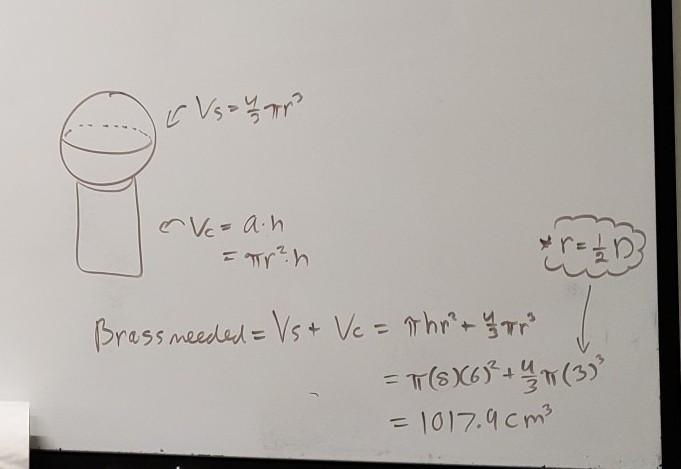 Vs = 4/3 πr³
Vc = a·h
= πr²·h
* r = 1/2 D
Brass needed = Vs + Vc = πhr² + 4/3 πr³
= π(8)(6)² + 4/3 π(3)³
= 1017.9 cm³